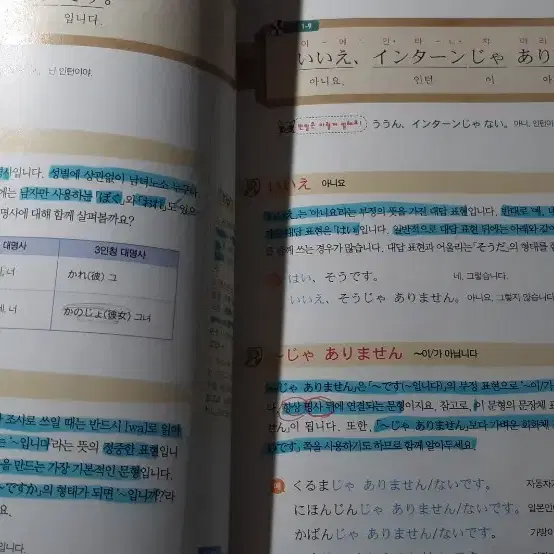 입니다.
난 인턴이야.
명사입니다. 성별에 상관없이 남녀노소 누구나
에는 남자만 사용하는 「ぼく」와 「おれ」도 있으
명사에 대해 함께 살펴볼까요?
대명사
3인칭 대명사
너
かれ(彼) 그
너
かのじょ(彼女) 그녀
조사로 쓰일 때는 반드시 [wa]로 읽어
는 '~입니다'라는 뜻의 정중한 표현입니
을 만드는 가장 기본적인 문형입니다.
~ですか」의 형태가 되면 '~입니까?'라
요.
입니다.
1-9
いいえ、インターンじゃ あり
아니요.
인턴
이
아
ううん、インターンじゃ ない。 아니, 인턴이
いいえ 아니요
「いいえ」는 '아니요'라는 부정의 뜻을 가진 대답 표현입니다. 반대로 '예, 네
대답 표현은 「はい」입니다. 일반적으로 대답 표현 뒤에는 아래와 같이
함께 쓰는 경우가 많습니다. 대답 표현과 어울리는 「そうだ」의 형태를
はい、そうです。 네, 그렇습니다.
いいえ、そうじゃ ありません。 아니요, 그렇지 않습니다
~じゃ ありません ~이/가 아닙니다
「~じゃ ありません」은 「~です(~입니다)」의 부정 표현으로 '~이/가
항상 명사 뒤에 연결되는 문형이지요. 참고로, 이 문형의 문장체 표
せん」이 됩니다. 또한, 「~じゃ ありません」보다 가벼운 회화체
いです」 쪽을 사용하기도 하므로 함께 알아두세요.
くるまじゃ ありません/ないです。 자동차가
にほんじんじゃ ありません/ないです。 일본인이
かばんじゃ ありません/ないです。 가방이